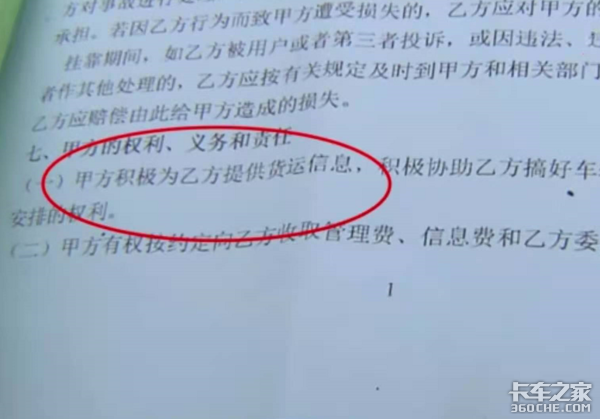 方对事故进行
承担。若因乙方行为而致甲方遭受损失的，乙方应对甲方的
挂靠期间，如乙方被用户或者第三者投诉，或因违法、
者作其他处理的，乙方应按有关规定及时到甲方和相关部门
乙方应赔偿由此给甲方造成的损失。
七、甲方的权利、义务和责任
（一）甲方积极为乙方提供货运信息，积极协助乙方搞好车
安排的权利。
（二）甲方有权按约定向乙方收取管理费、信息费和乙方委
1
卡车之家
360CHE.COM